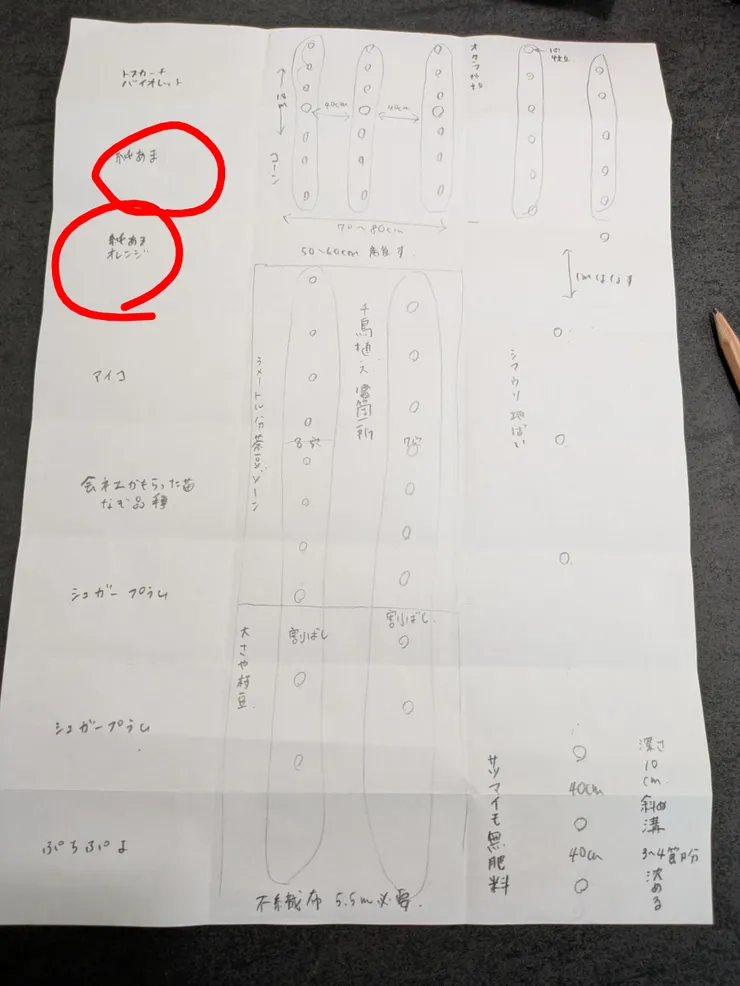 トスカーナ
バイオレット
純あま
純あま
オレンジ
アイコ
会社からもらった苗
なぞ品種
シュガープラム
シュガープラム
ぷちぷよ
コーン
40cm
40cm
70〜80cm
50〜60cm
千鳥植え
8穴
7穴
大さや枝豆
割りばし
割りばし
不織布 5.5m必要
オクラ
1mはなす
シマウリ地ばい
サツマイモ無肥料
40cm
40cm
深さ
10
cm
斜め
溝
3〜4節分
沈める